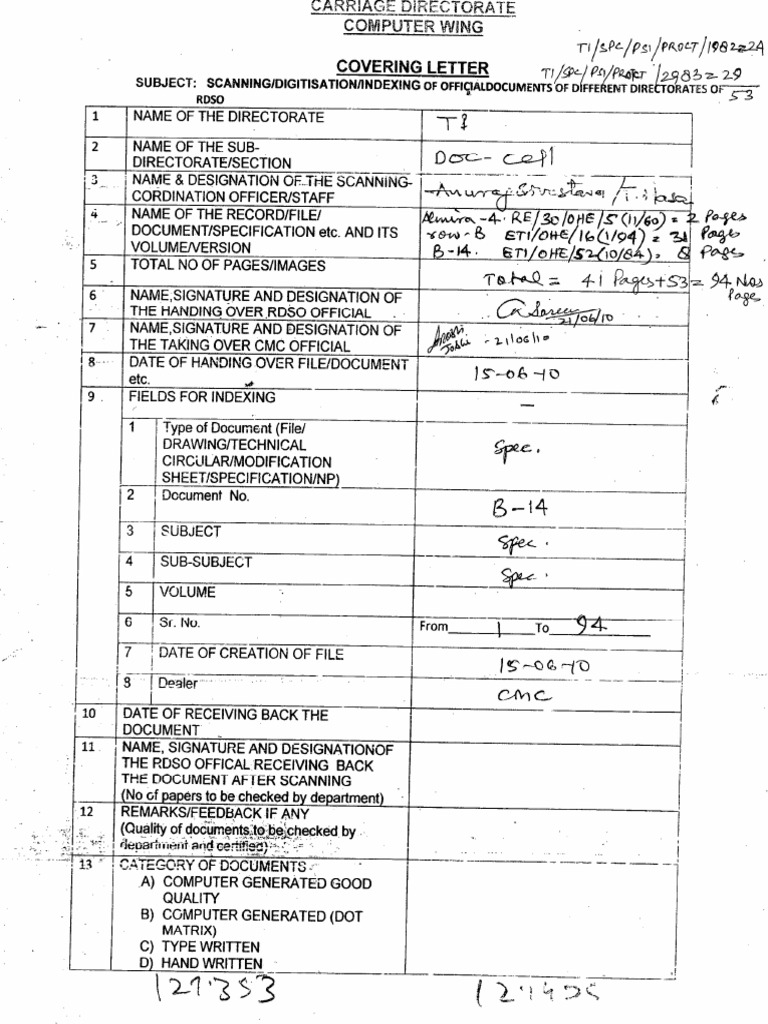 CARRIAGE DIRECTORATE
COMPUTER WING
TI/SPC/PSI/PROCT/1982=24
COVERING LETTER
TI/SPC/PSI/PROCT/2983=29
SUBJECT: SCANNING/DIGITISATION/INDEXING OF OFFICIALDOCUMENTS OF DIFFERENT DIRECTORATES OF
53
RDSO
1 NAME OF THE DIRECTORATE TI
2 NAME OF THE SUB-
DIRECTORATE/SECTION Doc-Cell
3 NAME & DESIGNATION OF THE SCANNING-
CORDINATION OFFICER/STAFF Anurag Srivastava
4 NAME OF THE RECORD/FILE/ Almira-4. RE/30/OHE/5(11/60)=2 Pages
DOCUMENT/SPECIFICATION etc. AND ITS row-B ETI/OHE/16(1/94)=31 Pages
VOLUME/VERSION B-14. ETI/OHE/52(10/84).=8 Pages
5 TOTAL NO OF PAGES/IMAGES Total = 41 Pages+53=94 Nos
Pages
6 NAME,SIGNATURE AND DESIGNATION OF
THE HANDING OVER RDSO OFFICIAL 21/06/10
7 NAME,SIGNATURE AND DESIGNATION OF
THE TAKING OVER CMC OFFICIAL Joshi -21/06/10
8 DATE OF HANDING OVER FILE/DOCUMENT
etc. 15-06-10
9 FIELDS FOR INDEXING –
1 Type of Document (File/
DRAWING/TECHNICAL
CIRCULAR/MODIFICATION Spec.
SHEET/SPECIFICATION/NP)
2 Document No. B-14
3 SUBJECT Spec.
4 SUB-SUBJECT Spec.
5 VOLUME
6 Sr. No. From 1 To 94
7 DATE OF CREATION OF FILE 15-06-10
8 Dealer CMC
10 DATE OF RECEIVING BACK THE
DOCUMENT
11 NAME, SIGNATURE AND DESIGNATIONOF
THE RDSO OFFICAL RECEIVING BACK
THE DOCUMENT AFTER SCANNING
(No of papers to be checked by department)
12 REMARKS/FEEDBACK IF ANY
(Quality of documents to be checked by
department and certified)
13 CATEGORY OF DOCUMENTS
A) COMPUTER GENERATED GOOD
QUALITY
B) COMPUTER GENERATED (DOT
MATRIX)
C) TYPE WRITTEN
D) HAND WRITTEN
127353